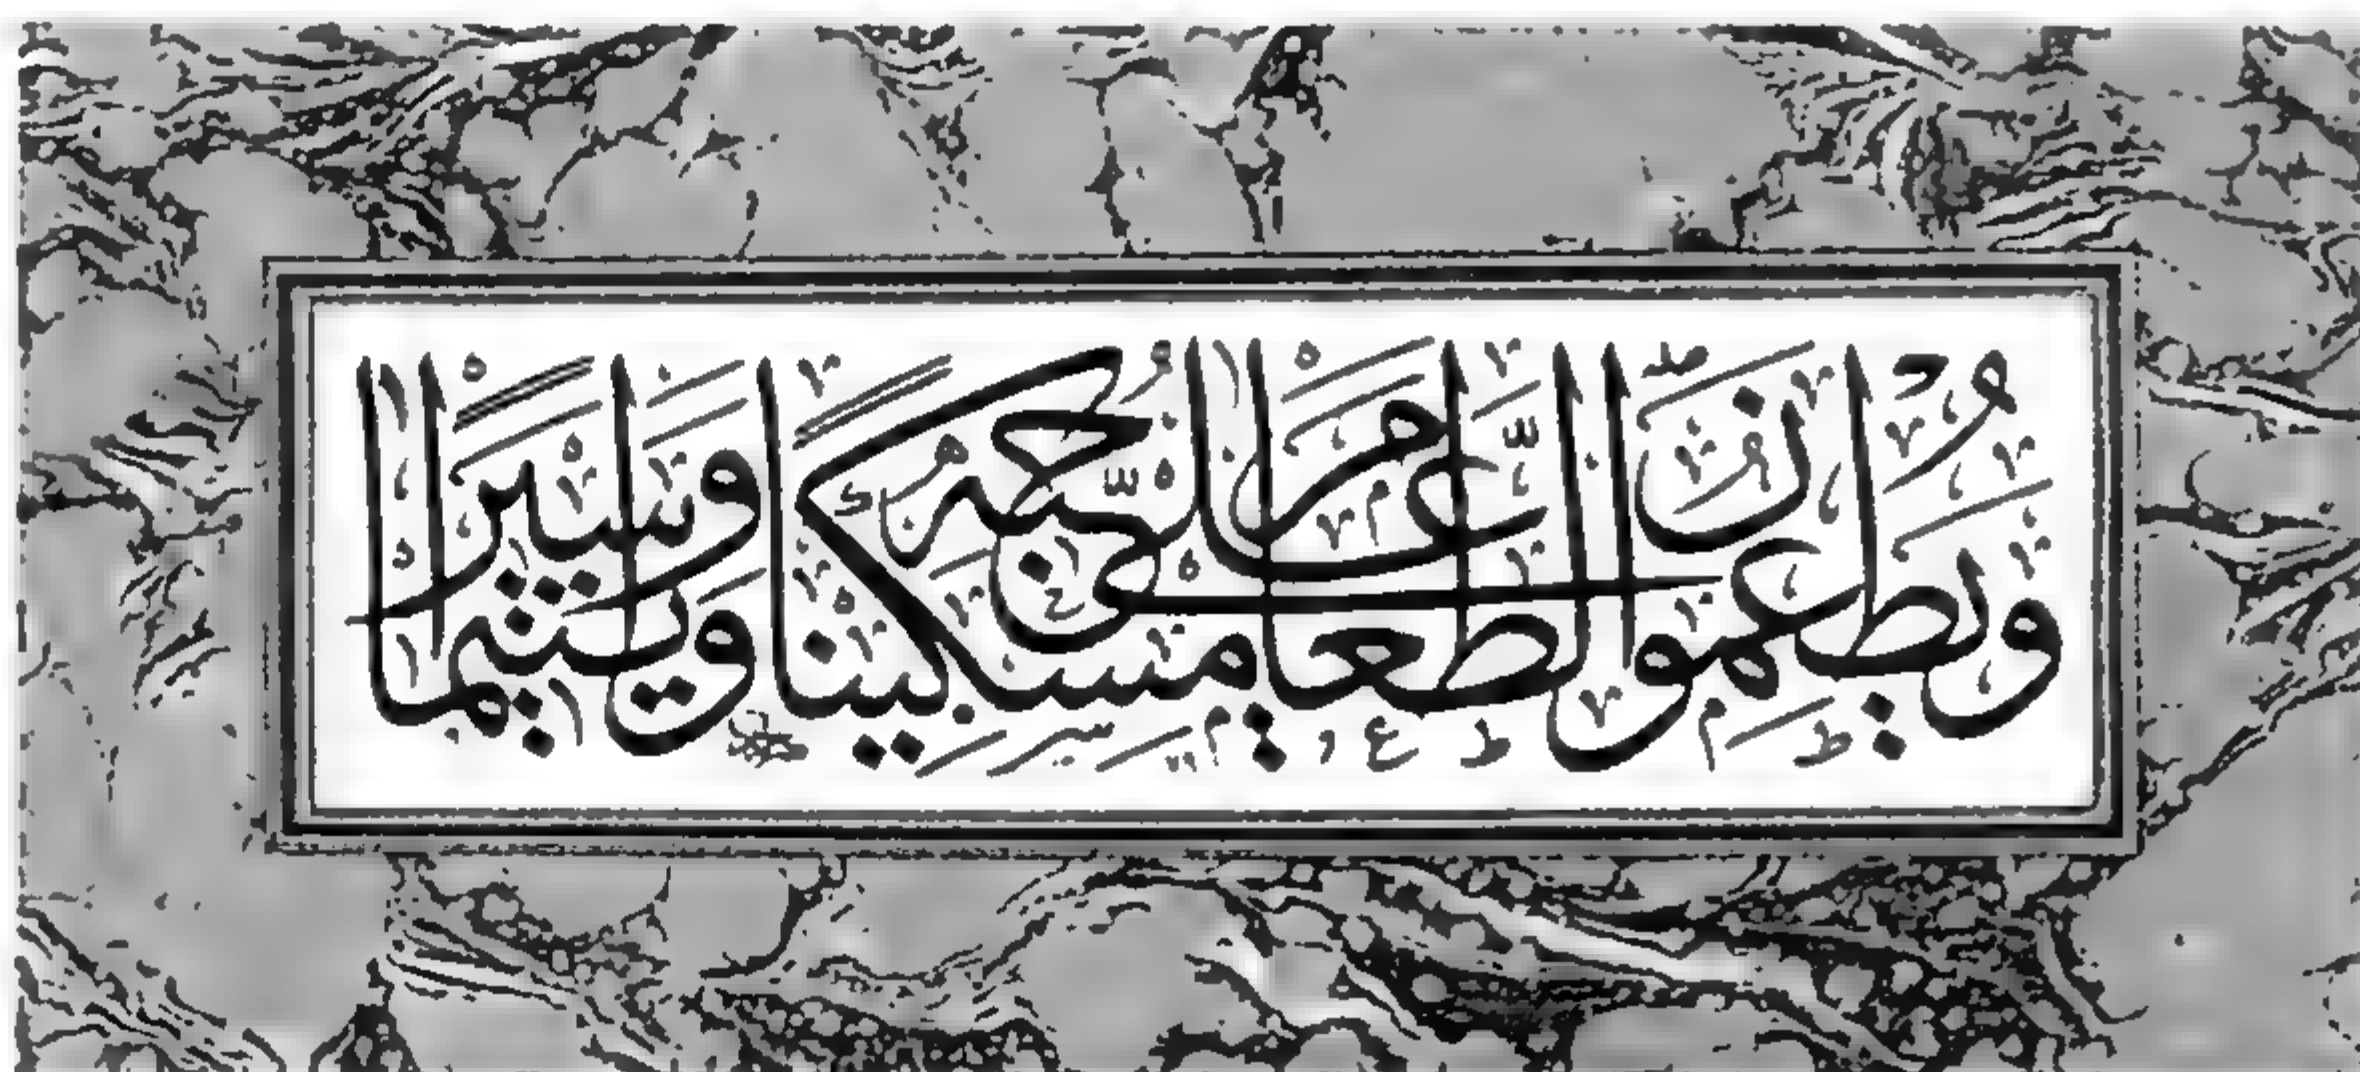 ويطعمون الطعام على حبه مسكينا ويتيما وأسيرا